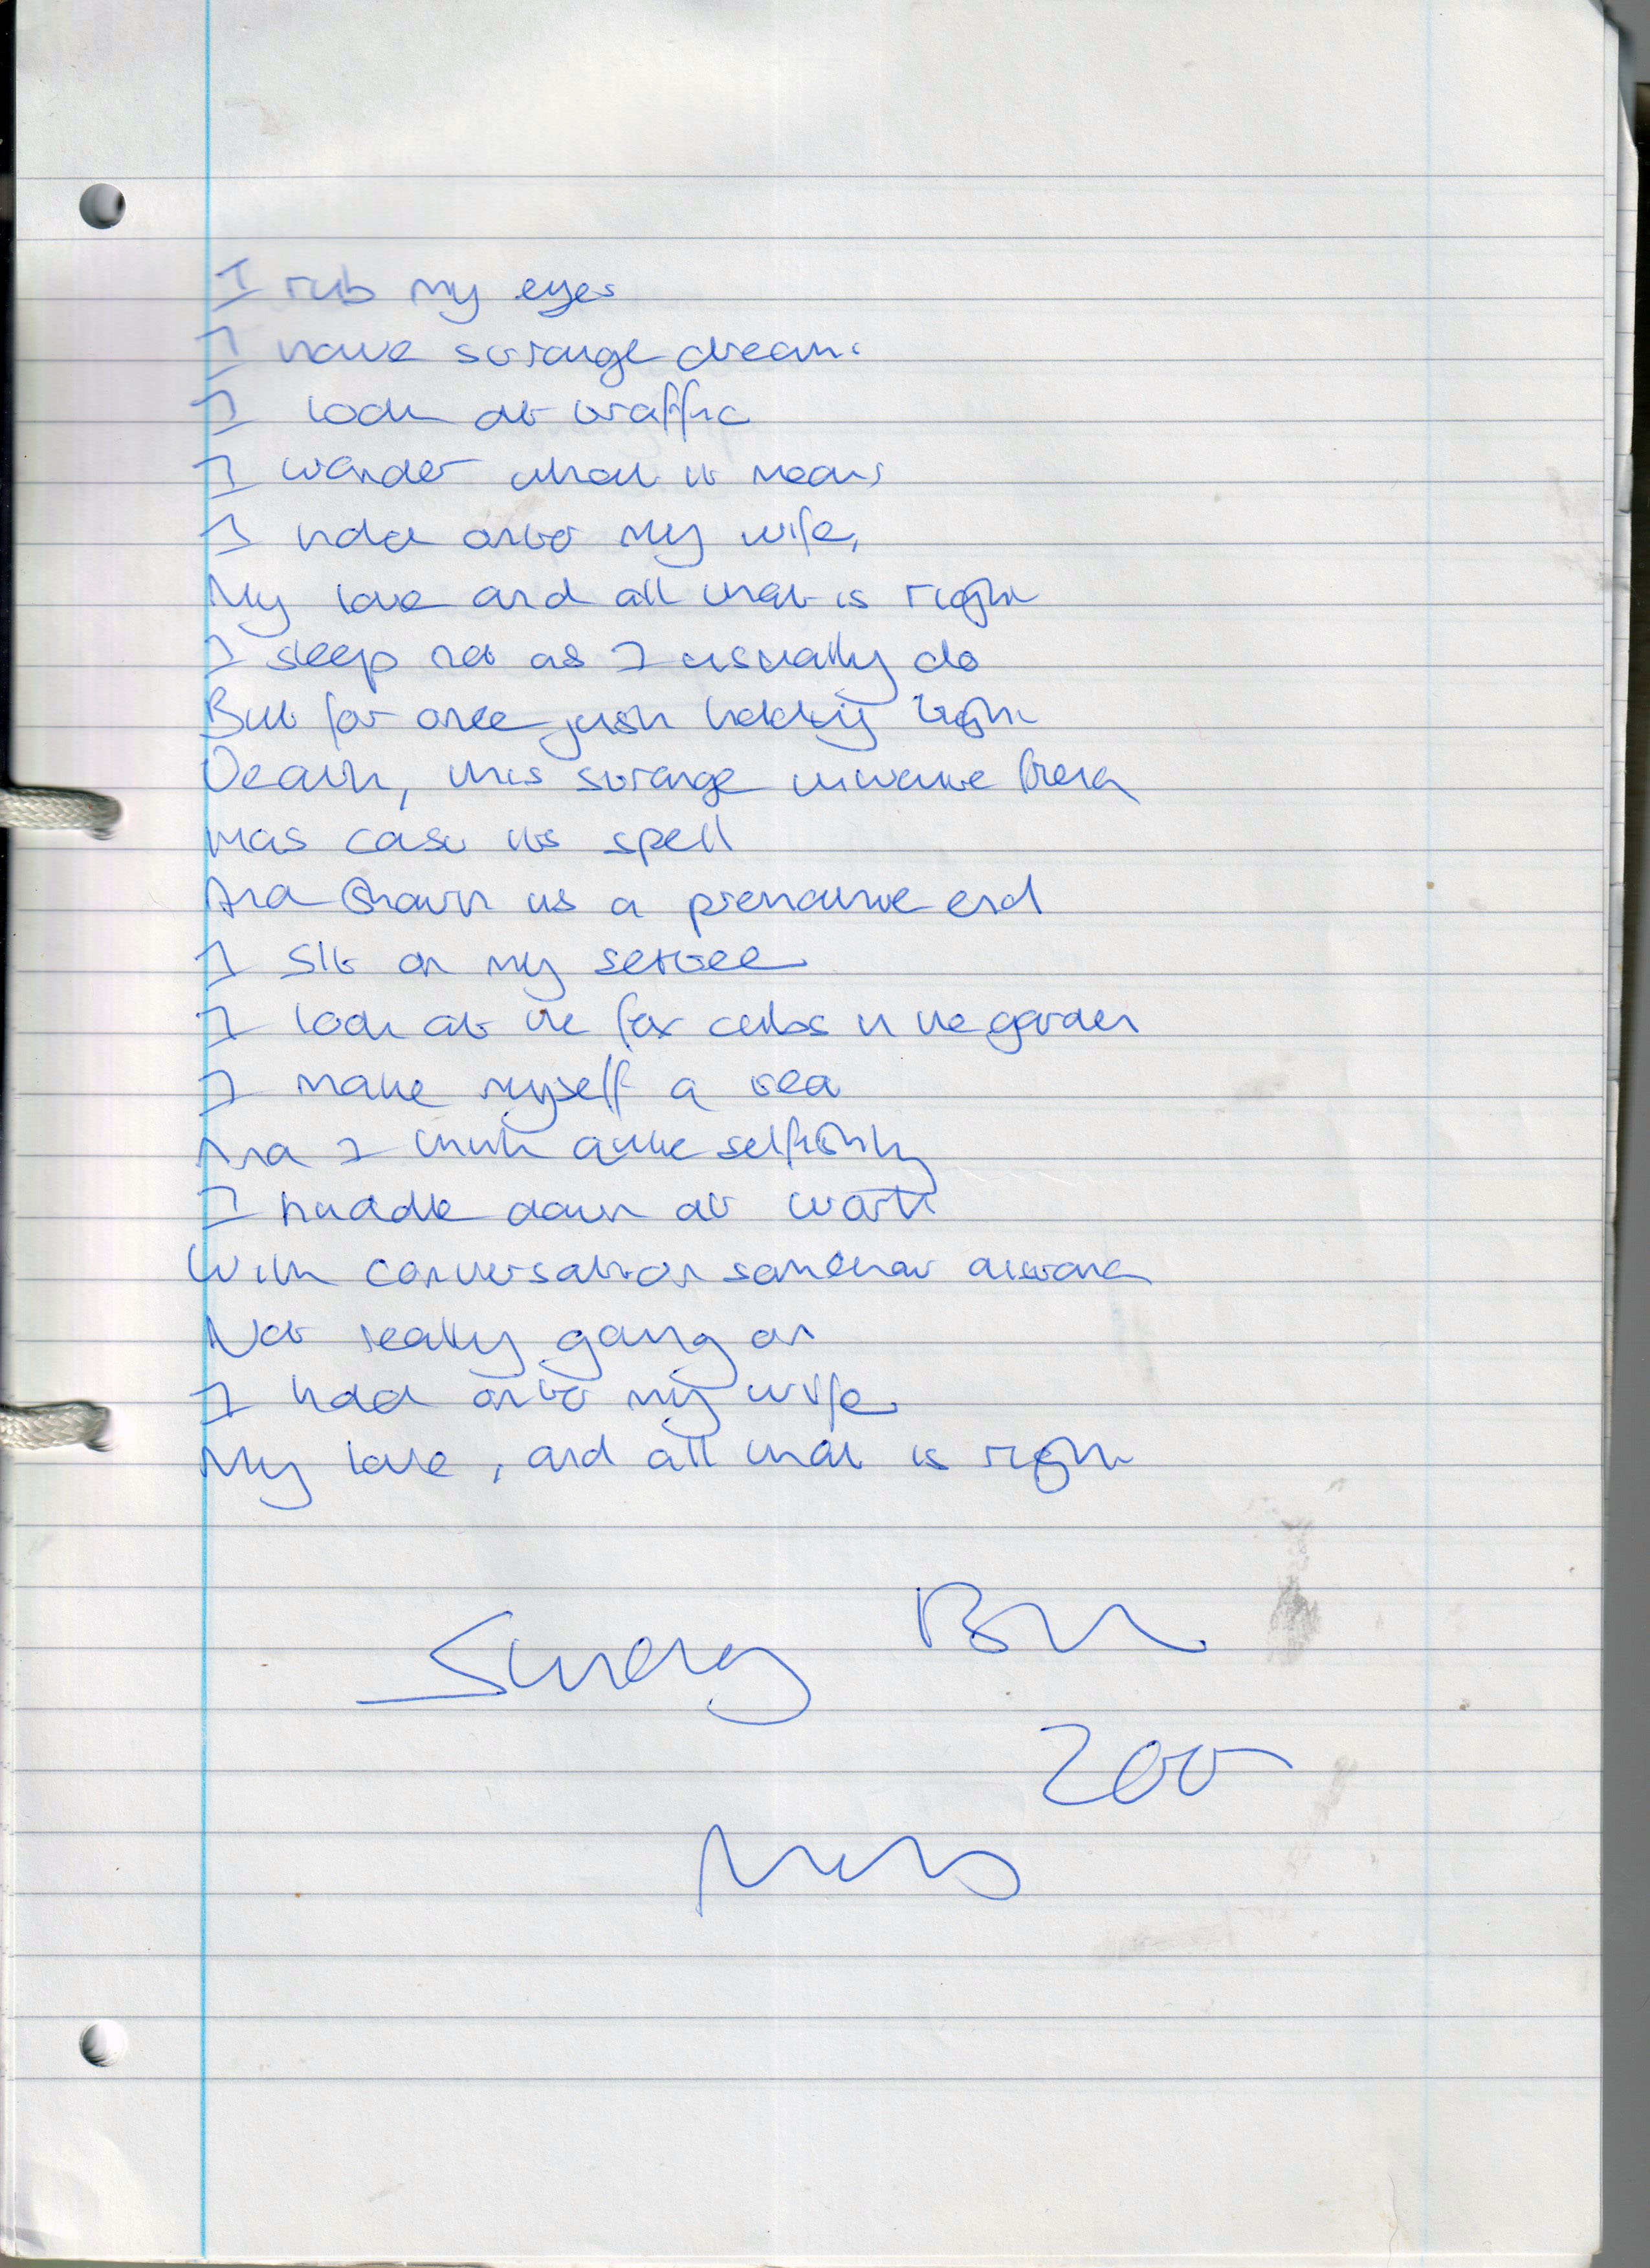 I rub my eyes
I have strange dreams
I look at traffic
I wander what it means
I hold onto my wife,
My love and all that is right
I sleep not as I usually do
But for once just holding tight
Death, this strange intrusive friend
Has cast its spell
And shown us a premature end
I sit on my settee
I look at the fox cubs in the garden
I make myself a tea
And I think quite selfishly
I huddle down at work
With conversation somehow
Not really going on
I hold onto my wife
My love, and all that is right